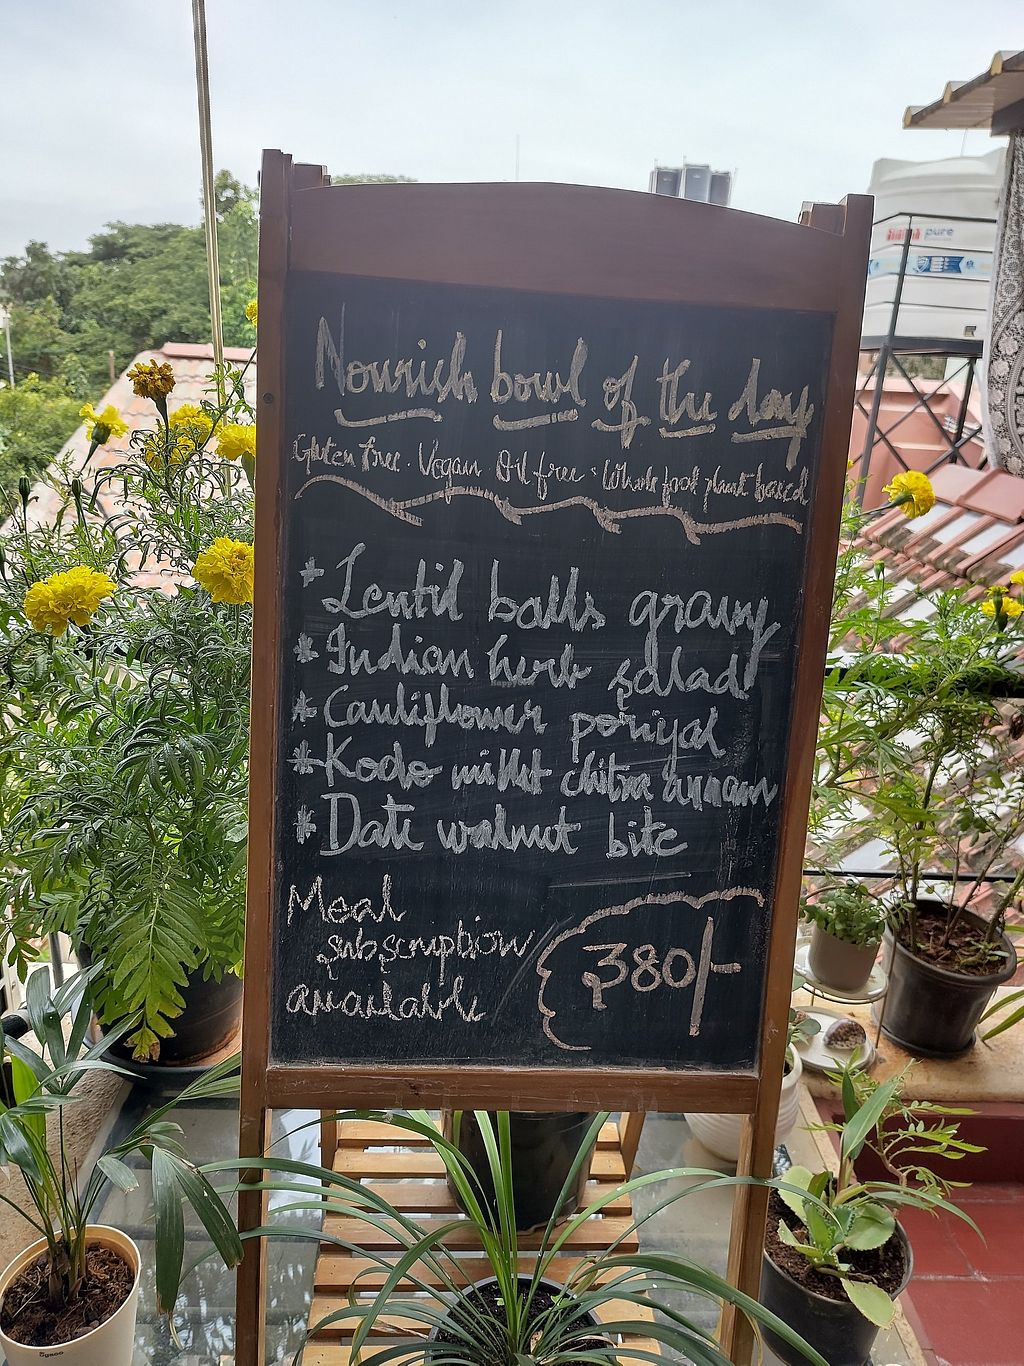 Nourish bowl of the day
Gluten free. Vegan Oil free. Whole food plant based
* Lentil balls gravy
* Indian herb salad
* Cauliflower poriyal
* Kodo millet chitra annam
* Date walnut bite
Meal
subscription
available
380/-
pure